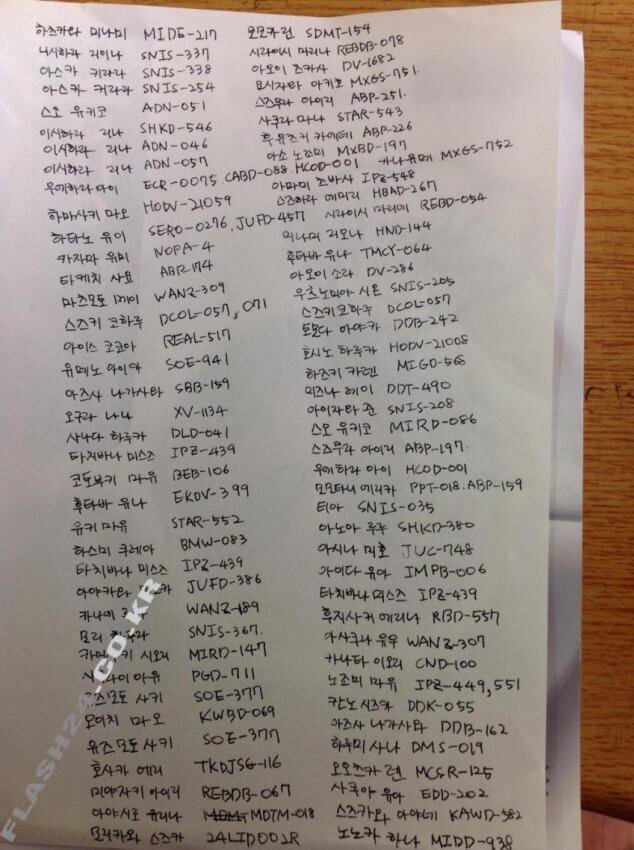 하즈키라 미나미 MIDE-217
니시하라 리이나 SNIS-337
아스카 키라라 SNIS-338
아스카 키라라 SNIS-254
스오 유키코 ADN-051
이시하라 리나 SHKD-546
이시하라 리나 ADN-046
이시하라 리나 ADN-057
우에하라 아이 ECR-0075, CABD-088. HCOD-001
하마사키 마오 HODV-21059
하타노 유이 SERO-0276, JUFD-457
카자마 유미 NOPA-4
타케치 사요 ABP-174
마츠모토 메이 WANZ-309
스즈키 코하루 DCOL-057, 071
아이스 코코아 REAL-517
유메노 아이카 SOE-941
아즈사 나가사타 SBB-159
오구라 나나 XV-1134
사나다 하루카 DLD-041
타치바나 미스즈 IPZ-439
코토부키 마유 BEB-106
후타바 유나 EKDV-399
유키 마유 STAR-552
하스미 쿠레아 BMW-083
타치바나 미스즈 IPZ-439
아야카와 JUFD-386
카나에 WANZ-189
모리 SNIS-367.
시오리 MIRD-147
아유 PGD-711
유즈모토 사키 SOE-377
오이치 마오 KWBD-069
유즈모토 사키 SOE-377
호사카 에리 TKDJSG-116
미야자키 아이리 REBDB-067
아야시로 유리나 MDTM-018
모리카와 스즈카 24LID001R
모모카 린 SDMT-154
시라이시 마리나 REBDB-078
아오이 츠카사 DV-1682
요시자와 아키호 MXGS-751.
스즈무라 아이리 ABP-251.
사쿠라 마나 STAR-543
후유츠키 카에데 ABP-226
아소 노조미 MXBD-197
카나 유메 MXGS-752
아마미 츠바사 IPZ-548
스즈하라 에미리 HBAD-267
시라이시 마리에 REBD-054
미나미 리오나 HND-144
후타바 유나 TMCY-064
아오이 소라 DV-286
우츠노미야 시온 SNIS-205
스즈키 코하루 DCOL-057
토모다 아야카 DDB-242
호시노 하루카 HODV-21008
하즈키 카렌 MIGD-568
미즈나 레이 DDT-490
아이자와 준 SNIS-208
스오 유키코 MIRD-086
스즈무라 아이리 ABP-197.
우에하라 아이 HCOD-001
모모타니 에리카 PPT-018. ABP-159
티아 SNIS-035
아노아 루루 SHKD-380
아시나 미호 JUC-748
아이다 유아 IMPB-006
타치바나 미스즈 IPZ-439
후지사키 에리나 RBD-557
아사쿠라 유우 WANZ-307
카나타 이오리 CND-100
노조미 마유 IPZ-449, 551
칸노 시즈카 DDK-055
아즈사 나가사타 DDB-162
하루미 사나 DMS-019
오오츠카 렌 MCSR-125
사쿠야 유아 EDD-202
스즈카와 아야네 KAWD-582
노노카 하나 MIDD-938
FLASH24.CO.KR